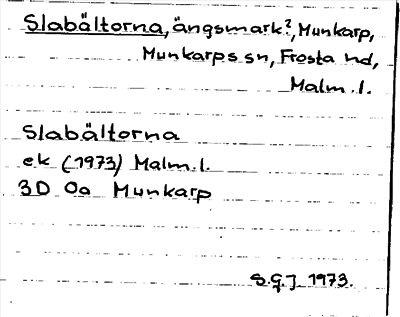 Slabältorna, ängsmark?, Munkarp,
Munkarps sn, Frosta hd,
Malm. l.
Slabältorna
ek (1973) Malm. l.
3D 0a Munkarp
S.G.J 1973.